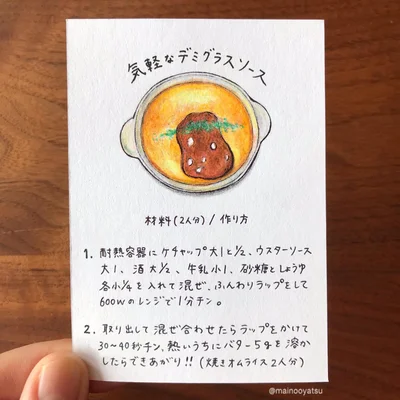 気軽なデミグラスソース
材料(2人分)/作り方
1. 耐熱容器にケチャップ大1と1/2、ウスターソース
大1、酒大1/2、牛乳小1、砂糖としょうゆ
各小1/4を入れて混ぜ、ふんわりラップをして
600wのレンジで1分チン。
2. 取り出して混ぜ合わせたらラップをかけて
30〜40秒チン、熱いうちにバター5gを溶か
したらできあがり!!(焼きオムライス2人分)
@mainooyatsu